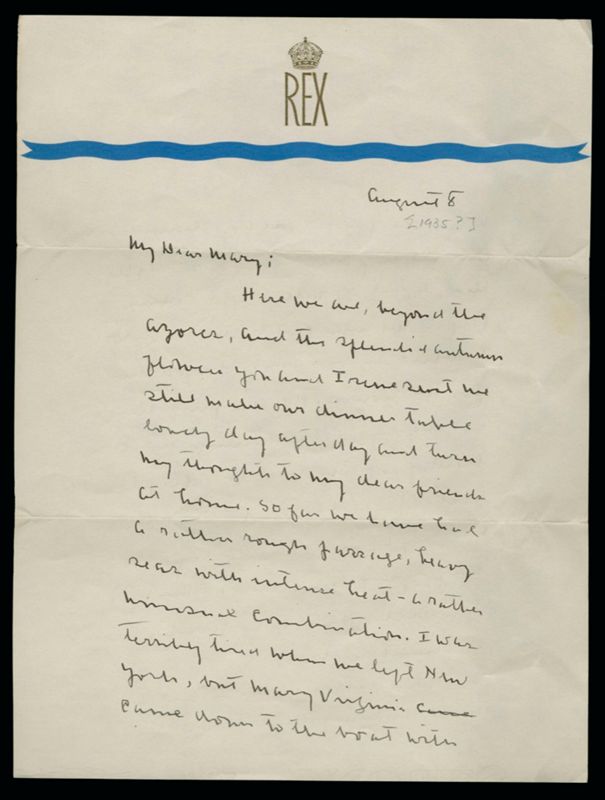 REX
August 8
[1935?]
My Dear Mary;
Here we are, beyond the
azores, and the splendid autumn
flowers you and Irene sent me
still make our dinner table
lovely day after day and turn
my thoughts to my dear friends
at home. So far we have had
a rather rough passage, heavy
seas with intense heat - a rather
unusual combination. I was
terribly tired when we left New
York, but Mary Virginia came
came down to the boat with